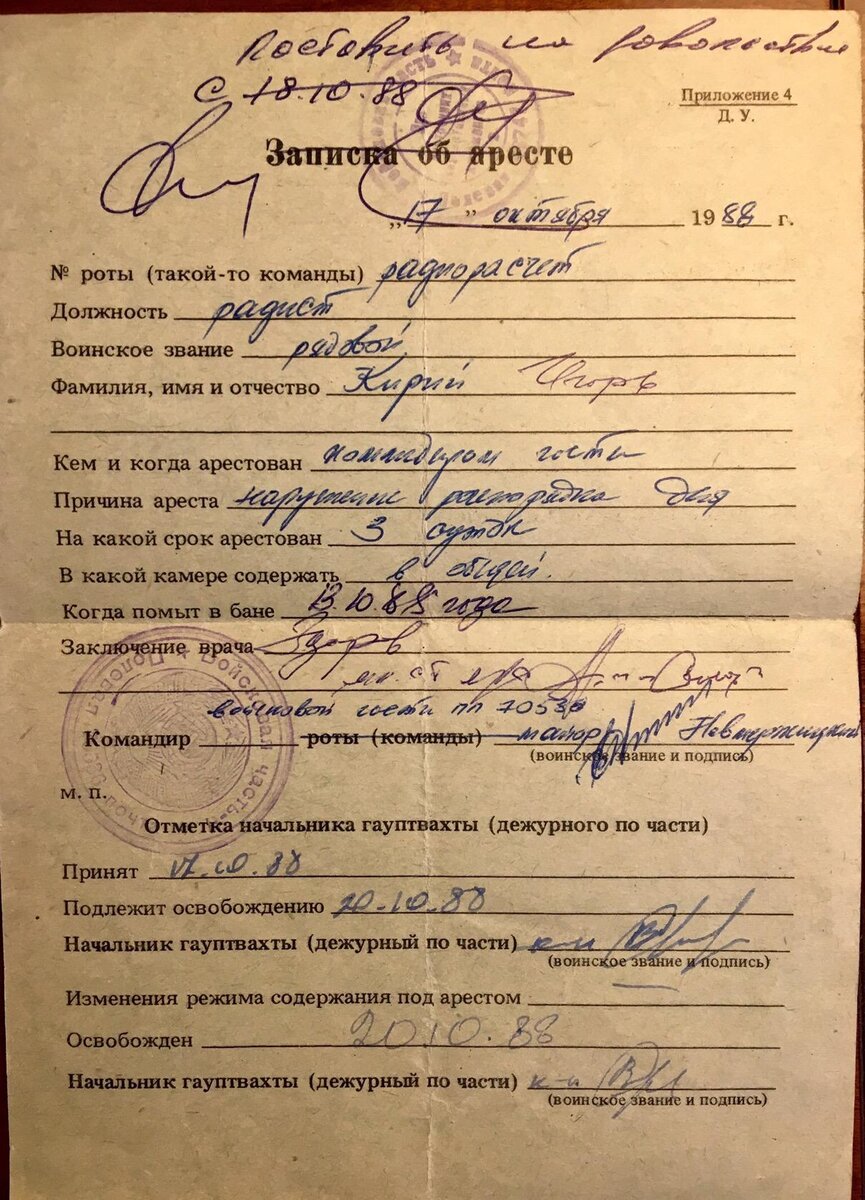 Поставить на довольствие
с 18.10.88
Приложение 4
Д. У.
Записка об аресте
„17” октября 1988 г.
№ роты (такой-то команды) радиорасчет
Должность радист
Воинское звание рядовой
Фамилия, имя и отчество Кирий Игорь
Кем и когда арестован командиром части
Причина ареста нарушение распорядка дня
На какой срок арестован 3 суток
В какой камере содержать в общей.
Когда помыт в бане 13.10.88 года
Заключение врача Здоров
войсковой части пп 70530
Командир роты (команды) майор
(воинское звание и подпись)
Войсковая часть
Полевая
м. п.
Отметка начальника гауптвахты (дежурного по части)
Принят 17.10.88
Подлежит освобождению 20.10.88
Начальник гауптвахты (дежурный по части) к-н
(воинское звание и подпись)
Изменения режима содержания под арестом
Освобожден 20.10.88
Начальник гауптвахты (дежурный по части) к-н
(воинское звание и подпись)